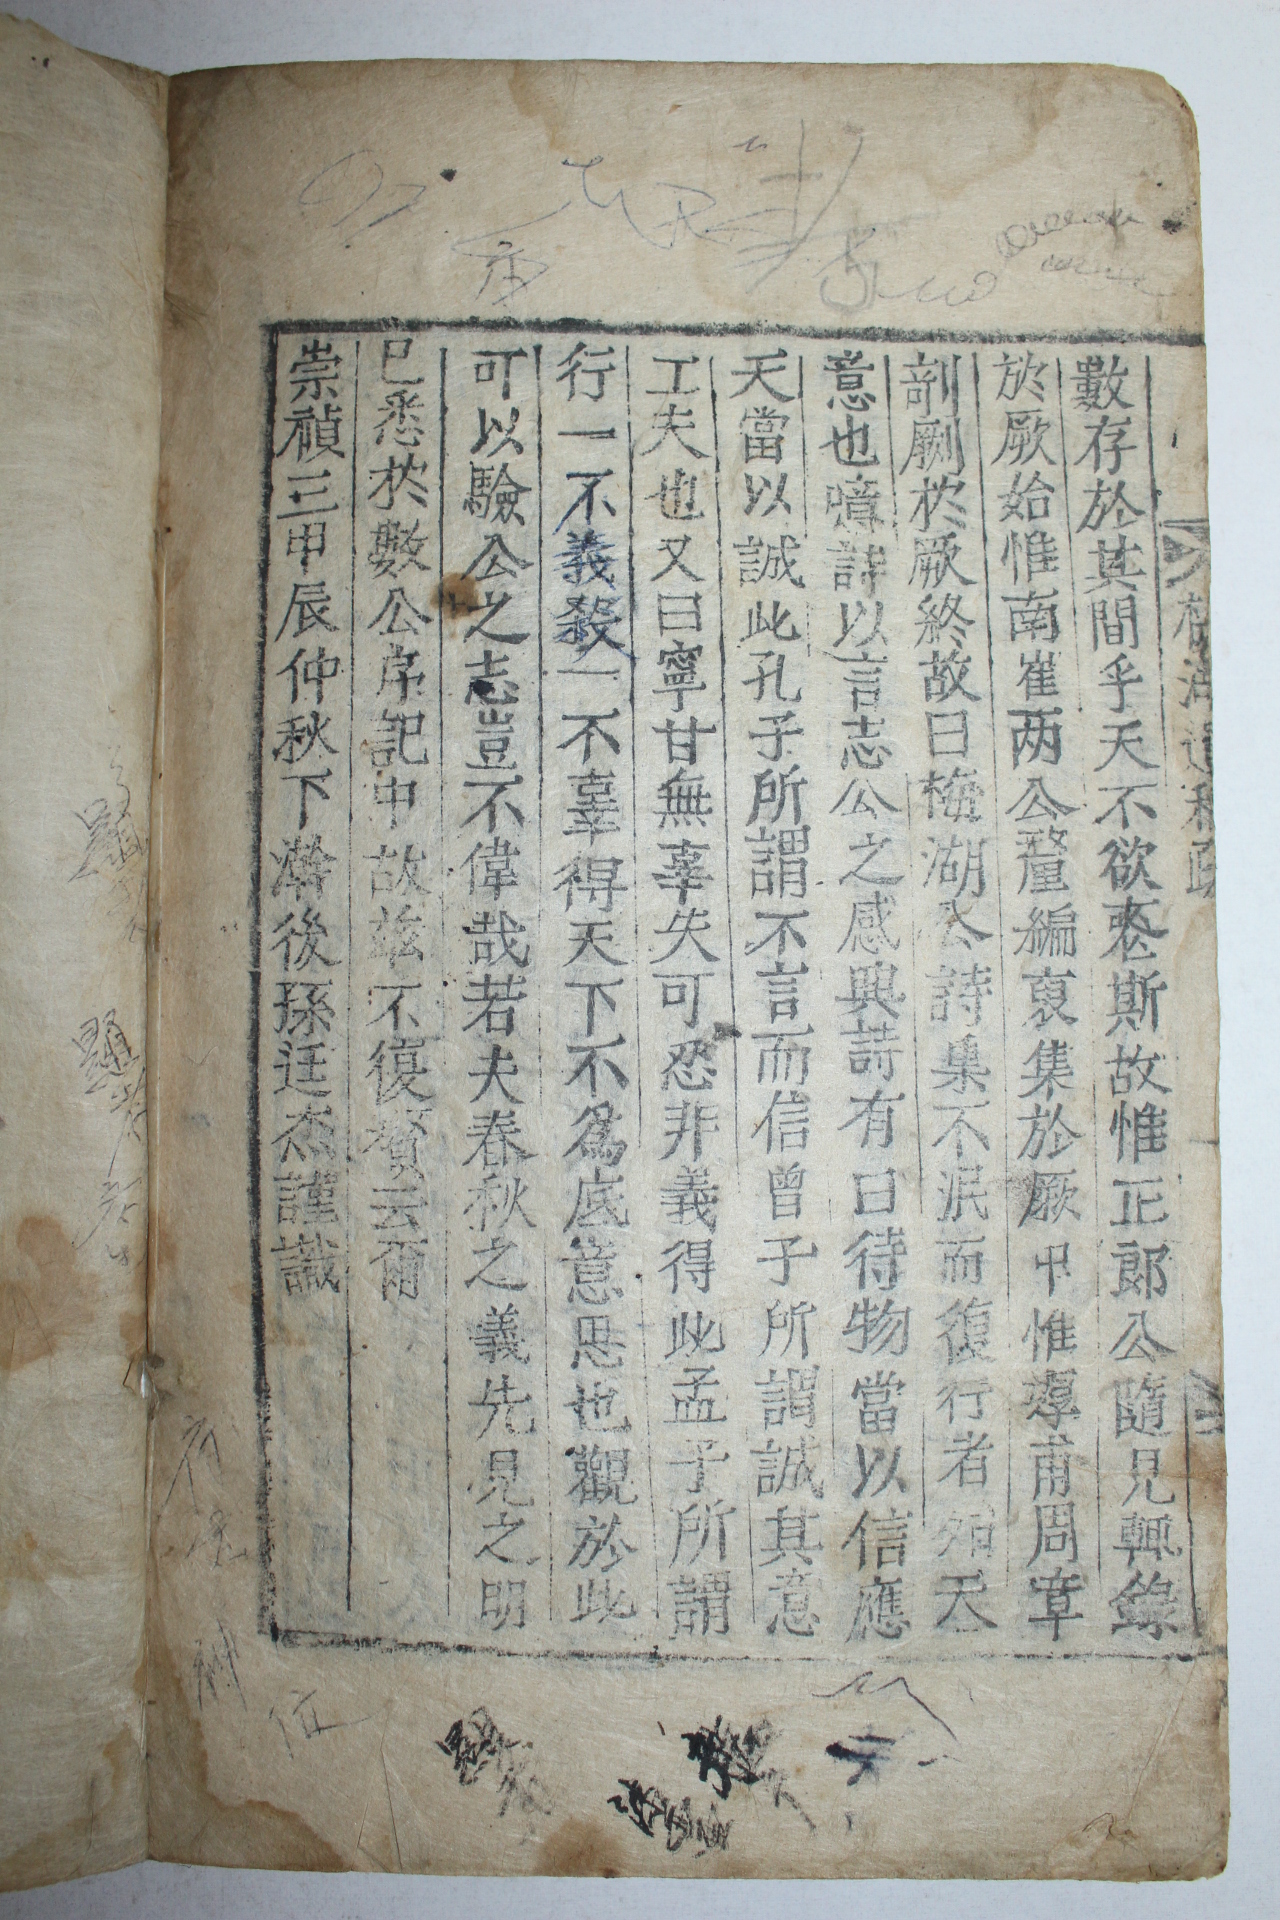 數存於其間乎天不欲喪斯故惟正郞公隨見輒錄
於厥始惟南崔两公釐編裒集於厥中惟遵甫周章
剞劂於厥終故曰梅湖公詩集不泯而復行者殆天
意也噫詩以言志公之感興詩有曰待物當以信應
天當以誠此孔子所謂不言而信曾子所謂誠其意
工夫也又曰寧甘無辜失可恐非義得此孟子所謂
行一不義殺一不辜得天下不爲底意思也觀於此
可以驗公之志豈不偉哉若夫春秋之義先見之明
已悉於數公序記中故玆不復贅云爾
崇禎三甲辰仲秋下澣後孫廷杰謹識
梅湖遺稿跋